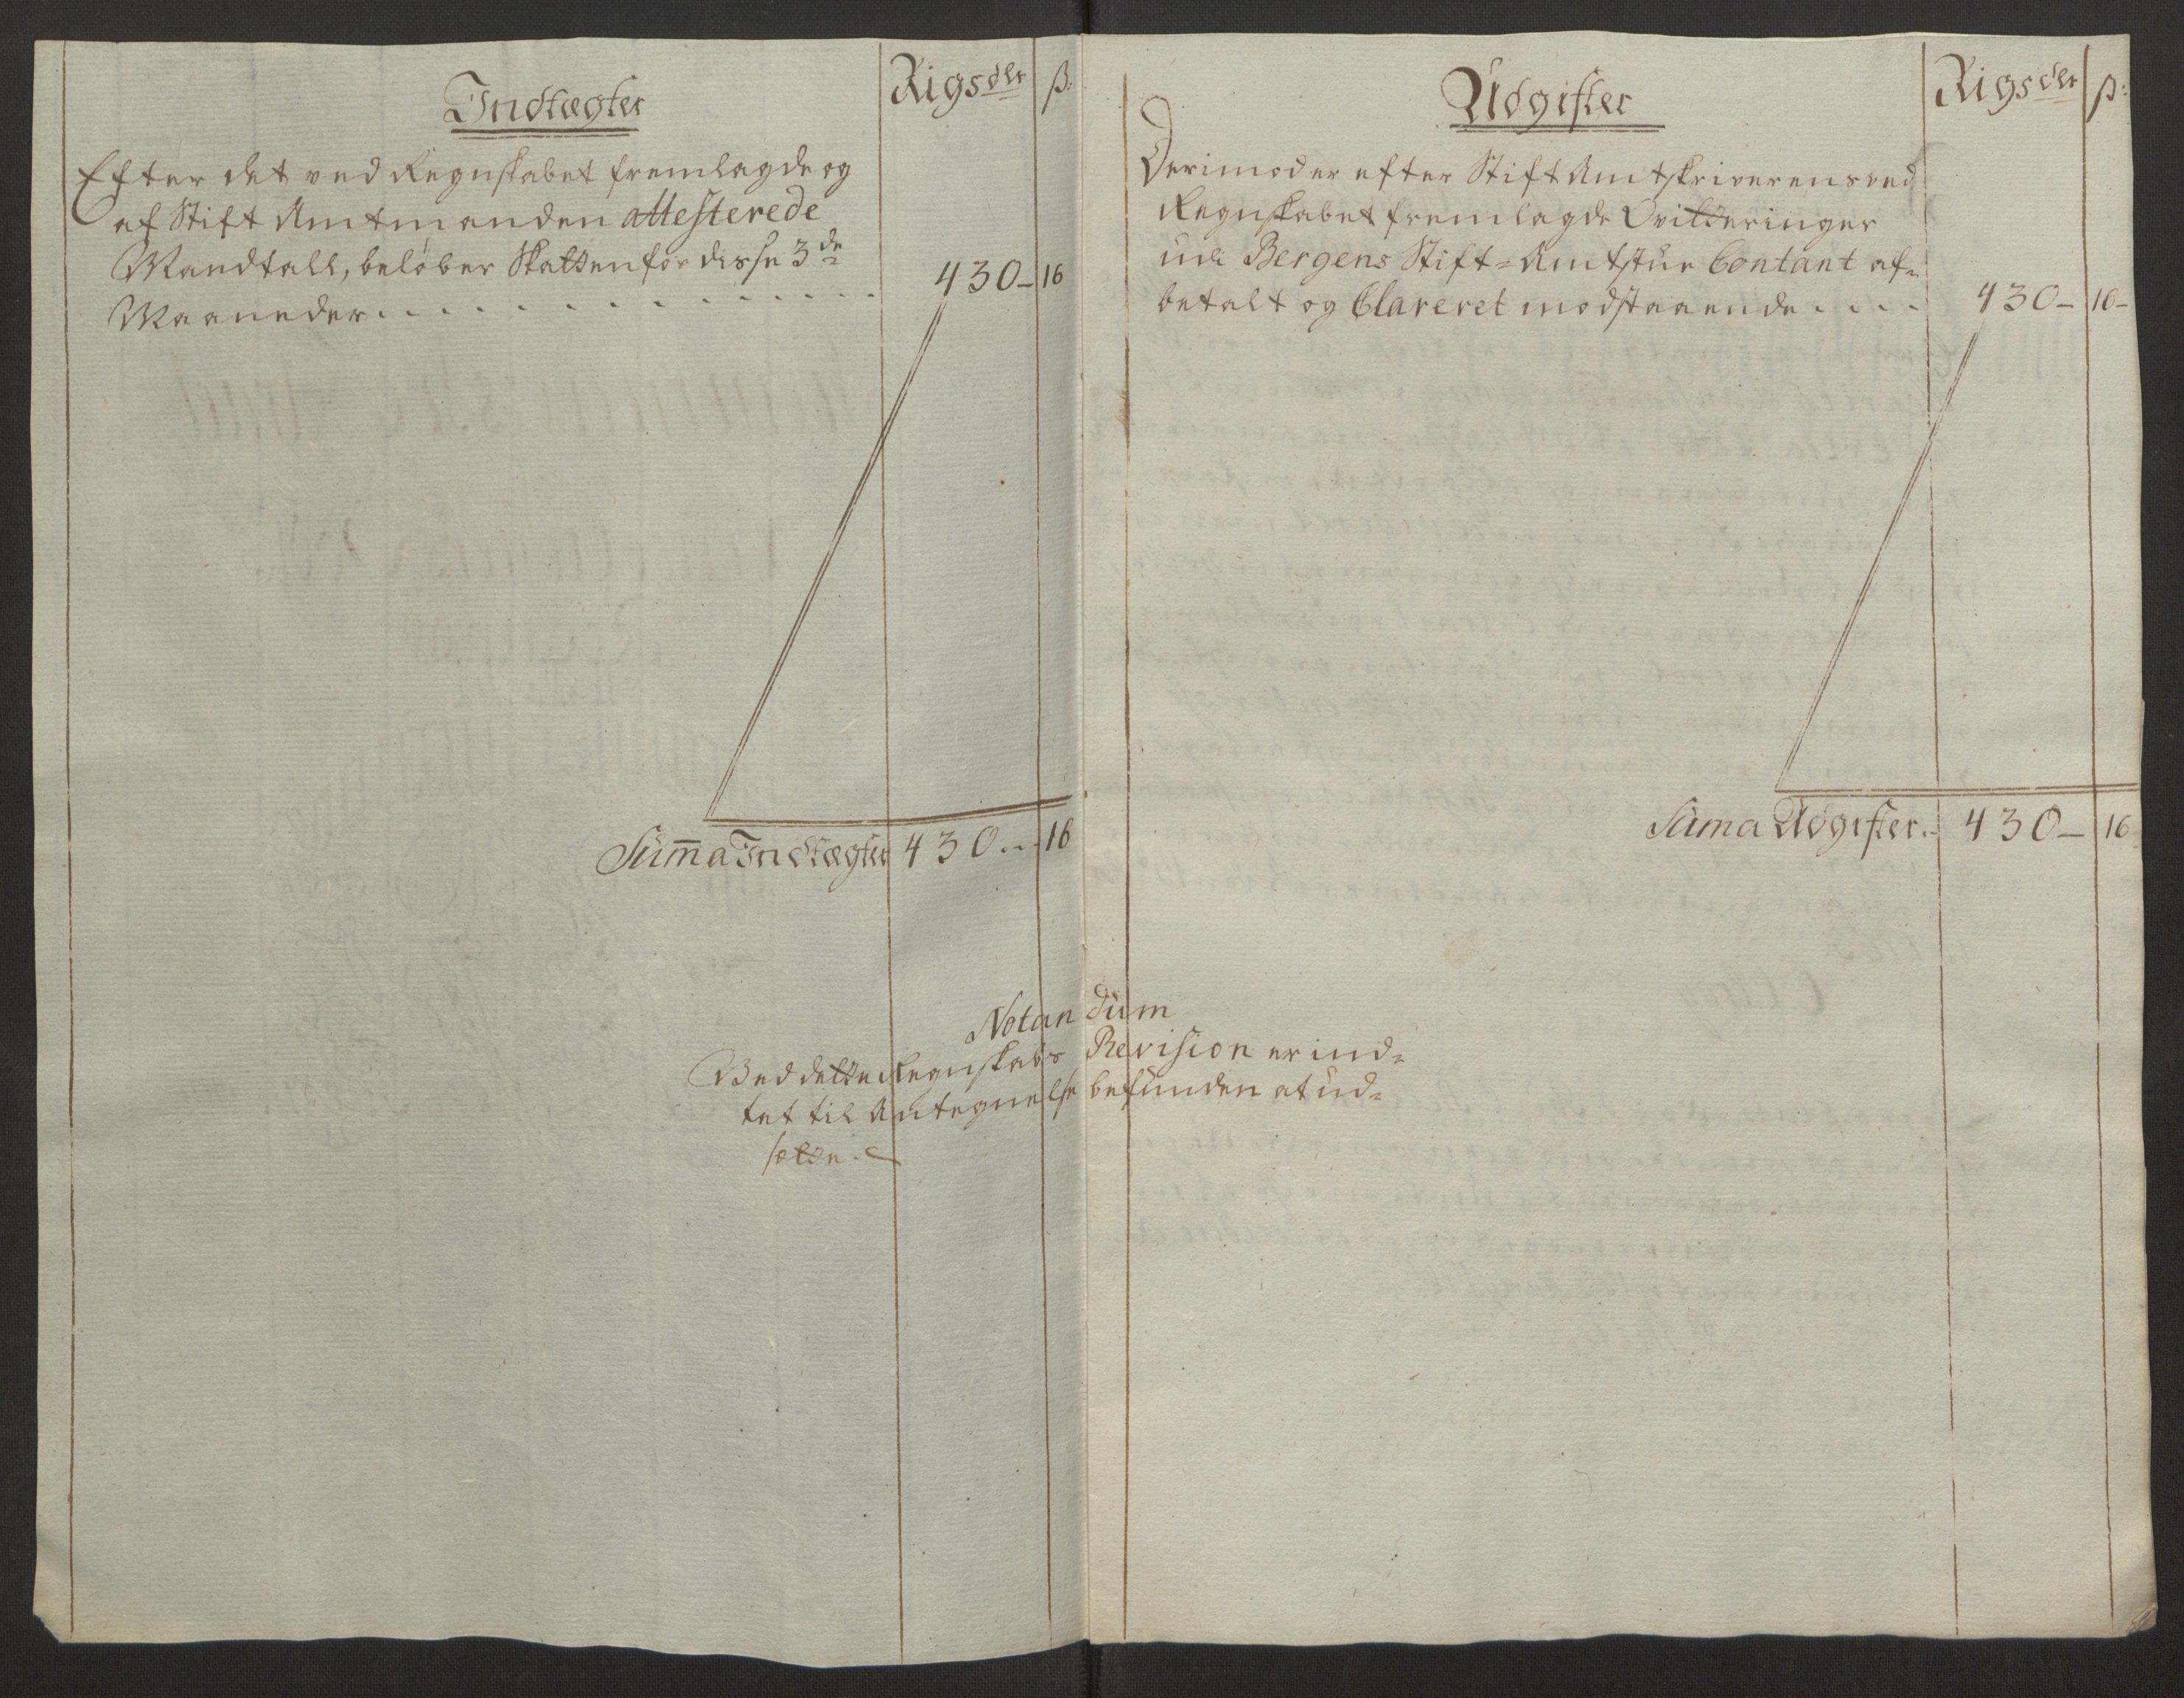 Indtægter
Rigsdlr
ß:
Efter det ved Regnskabet fremlagde og
af Stift Amtmanden attesterede
Mandtall, beløber Skatten for disse 3de
Maaneder . . . . . . . . . . . . 430 – 16
Summa Indtægter 430 . . 16
Udgifter
Rigsdlr
ß:
Derimod er efter Stift Amtskriverens ved
Regnskabet fremlagde Qvitteringer
udi Bergens Stift=Amtstue Contant af=
betalt og Clareret modstaaende . . . . 430 – 16 –
Suma Udgifter . – 430 – 16
Notandum
Ved dette Regnskabs Revision er ind=
tet til Antegnelse befunden at ud=
sætte.